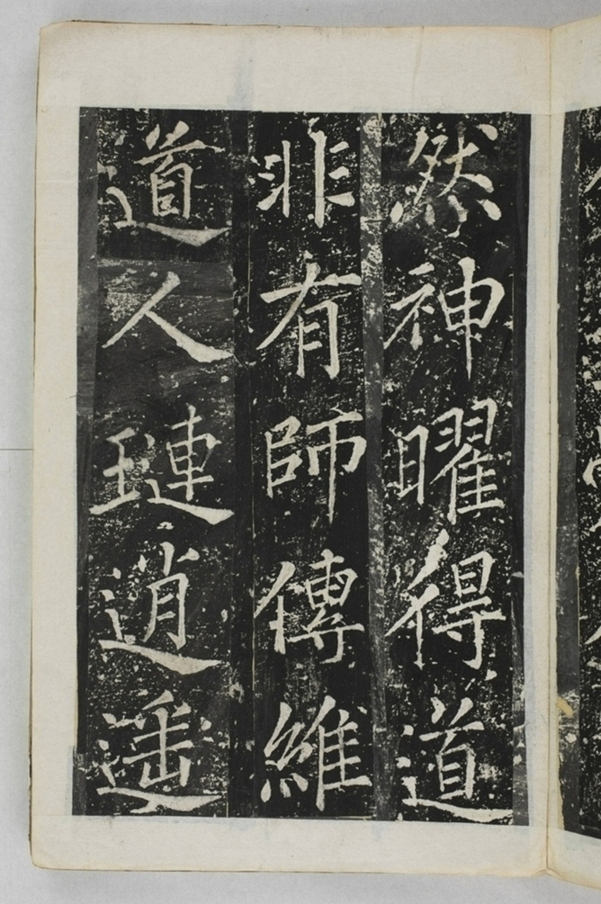 然神曜得道
非有師傳維
道人璉逍遥